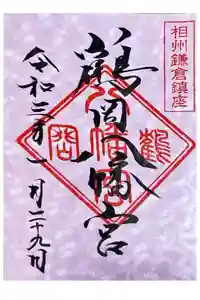 相州鎌倉鎮座
鶴岡八幡宮
令和三年一月二十九日